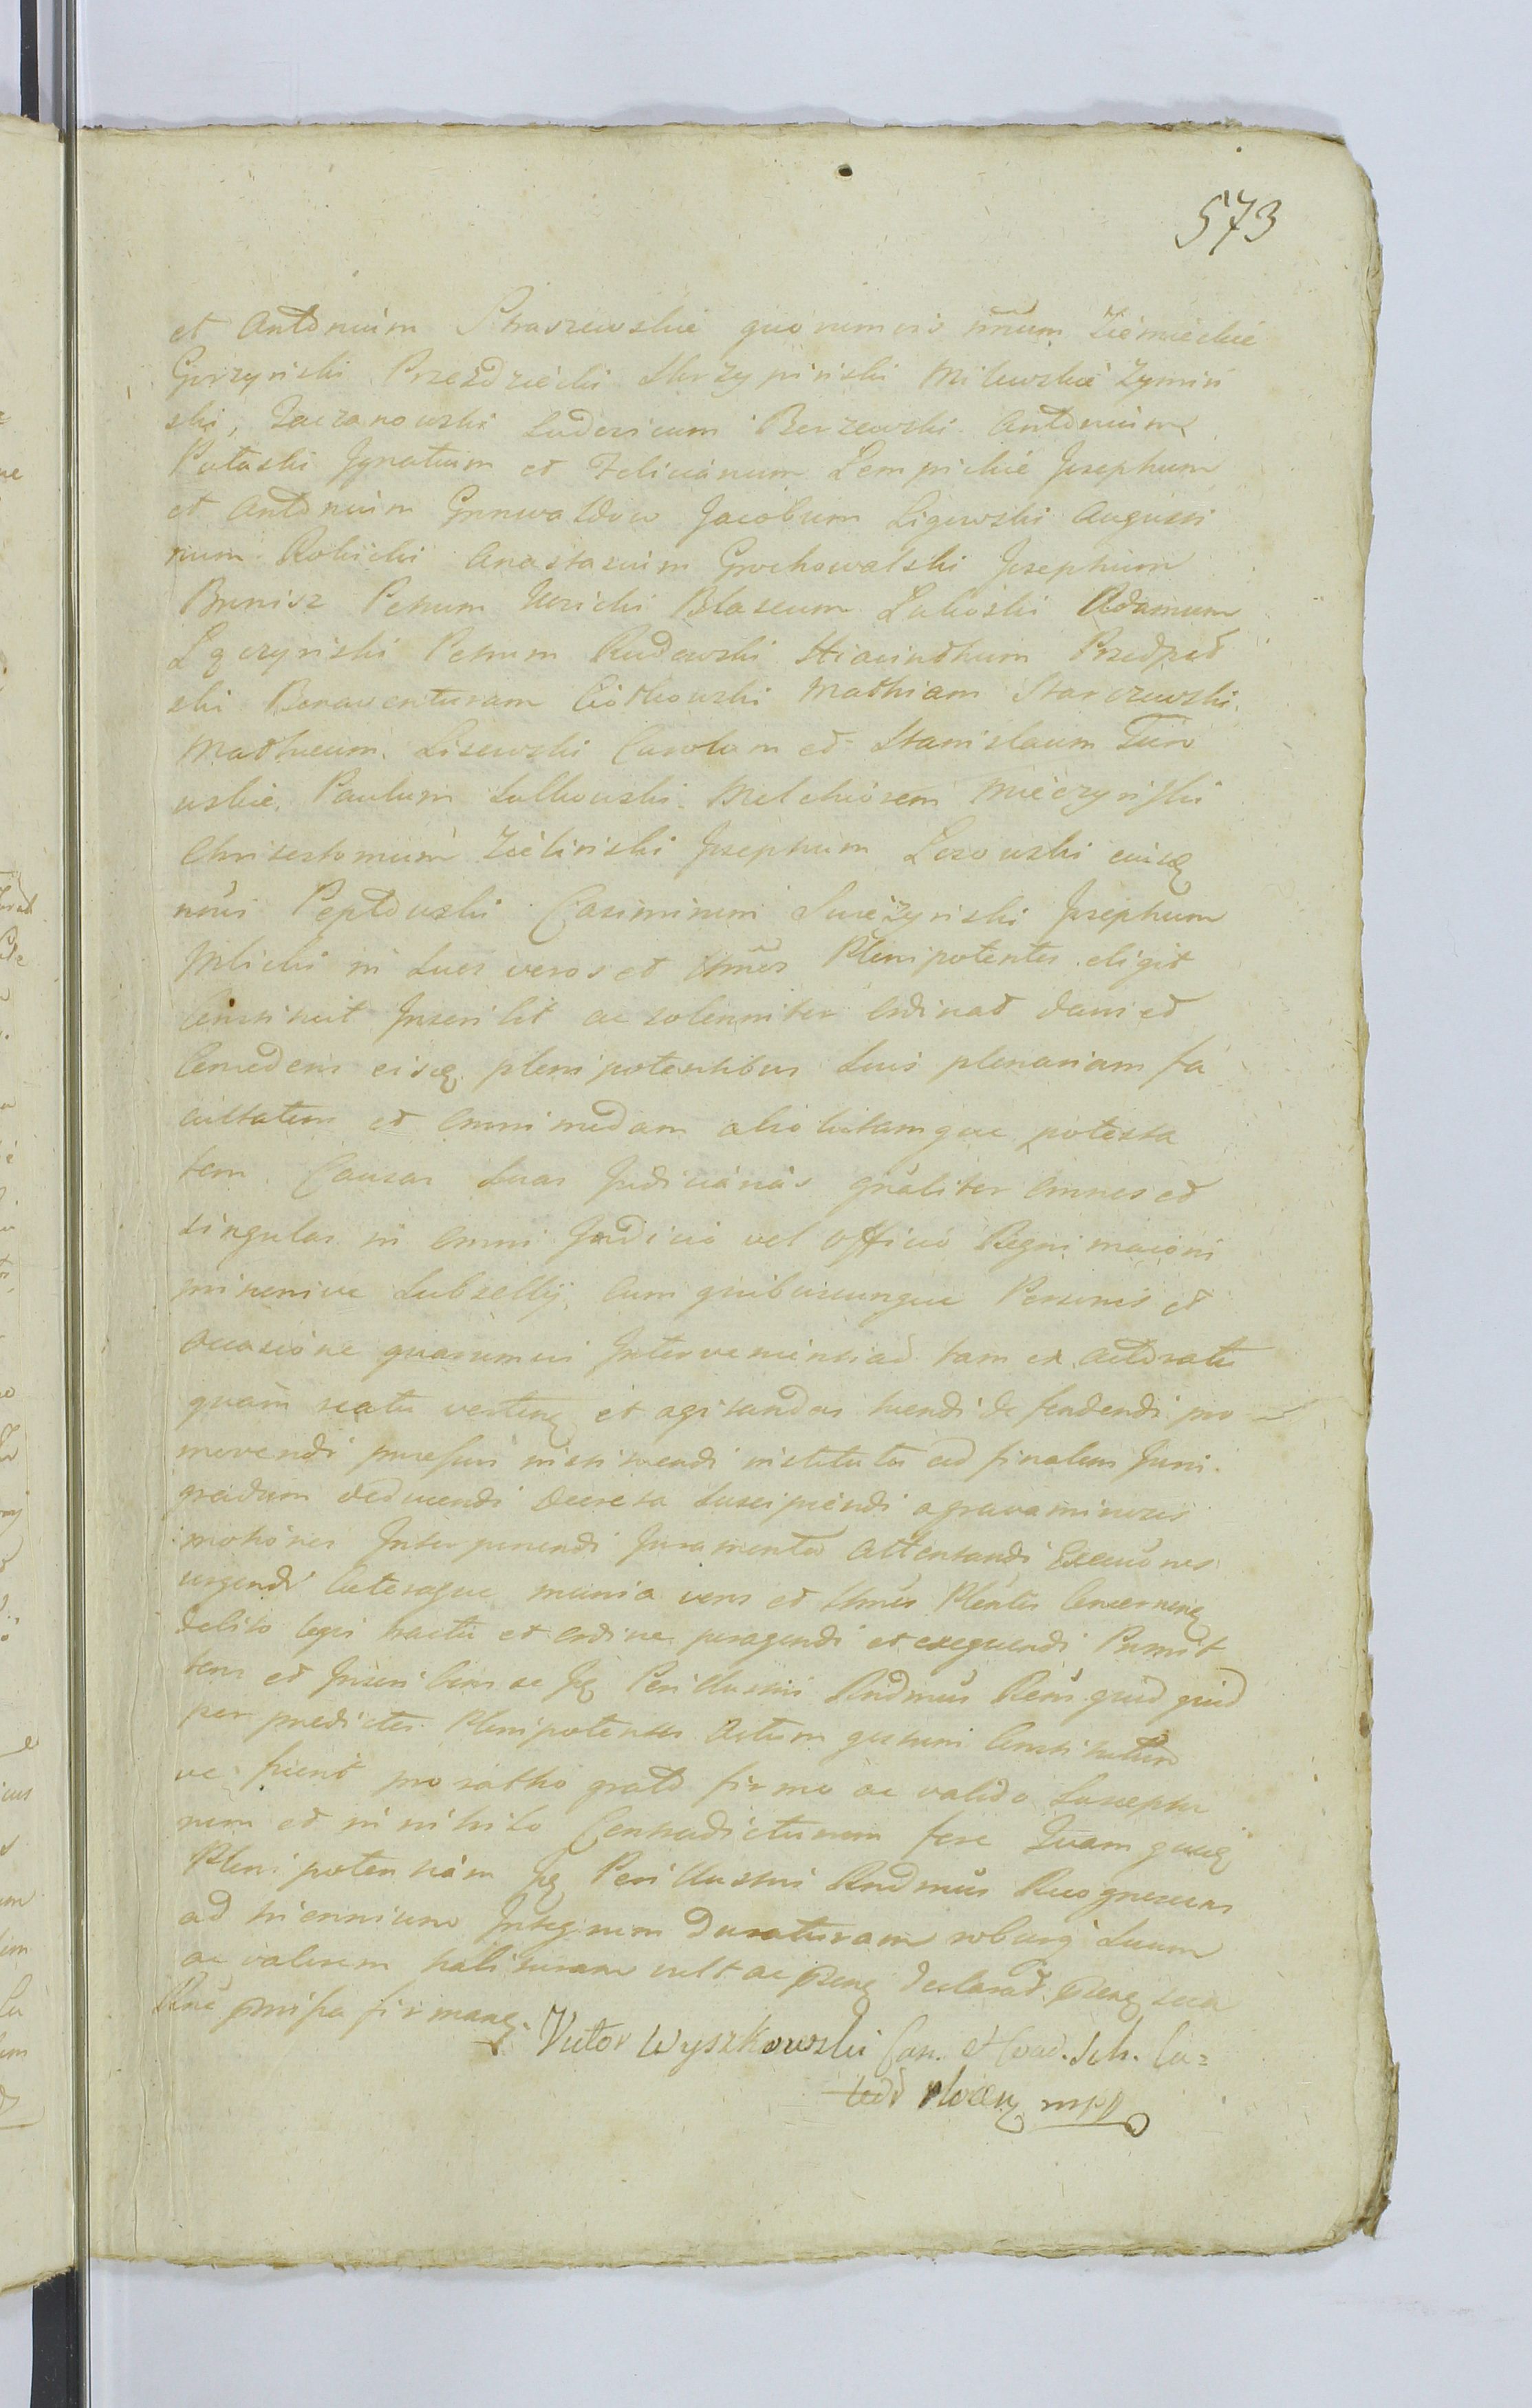 573
et Antonium Straszewskie quorumvis unum Ziemieckie
Gorzyński Przezdziecki Skrzypiński Milewskie Zymiń
ski, Zaczanowski Ludovicum Berzewski Antonium
Putaski Ignatium et Felicianum Lempickie Josephum
et Antonium Grnwaldow Jacobum Ligowski Augusti
num Robicki Anastasium Grochowalski Josephum
Brunisz Petrum Uzicki Blaseum Lukoski Adamum
Łączyński Petrum Rudowski Hiacinthum Przedpeł
ski Bonawenturam Ciółkowski Mathiam Starczewski
Matheum Lisewski Carolum et Stanislaum Turo
wskie, Paulum Sulkowski Melchiorem Mieczyński
Chrisostomum Zieliński Josephum Lesowski eiusq
nois Peptowski Casimirum Swieżyński Josephum
Mlicki in Suos veros et Lttmos Plenipotentes eligit
Constituit Inscribit ac solenniter Ordinat dans et
Concedens eisq plenipotentibus Suis plenariam fa
cultatem et omnimodam absolutamque potesta
tem Causas Suas Judiciarias gnaliter omnes et
singulas in omni Judicio vel Officio Regni maiori
minorive Subsellij, Cum quibuscunque Personis et
occasione quarumvis Interveniensiad tam ex actoratu
quam reatu verten et agitandas tuendi defendendi pro
movendi processus instituendi instituta ad finalem Juris
gradum deducendi Decreta Suscipiendi a gravaminosis
motiones Interponendi Juramenta Attentandi Executiones
urgendi Caeteraque munia veros et Lttmos Plentes Concernen
debito legis tractu et ordine peragendi et exequendi Promit
tens et Inscribens se Jq Perillustris Rndmus Rens quid quid
per praedictos Plenipotentes Actum gestum Constitutum
ve fuerit pro ratho grato firmo ac valido Susceptu
rum et in nihilo Contradicturum fore Quam quiq
Plenipotentiam Jq Perillustris Rndmus Recognoscens
ad triennium Integrum duraturam roburq Suum
ac valorem habituram vult ac psens declarat psens sua
Rne pmissa firmans.
Victor Wyszkowski Can. et Coad. Sch. Ca=
ted Plocen mpp